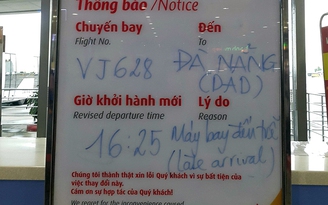 Thông báo/Notice
Chuyến bay Đến
Flight No. To
VJ628 ĐÀ NẴNG
(DAD)
Giờ khởi hành mới Lý do
Revised departure time Reason
16:25 Máy bay đến trễ
(late arrival)
Chúng tôi thành thật xin lỗi Quý khách vì sự bất tiện của
việc thay đổi này.
Cám ơn sự hợp tác của Quý khách!
We regret for the inconvenience caused